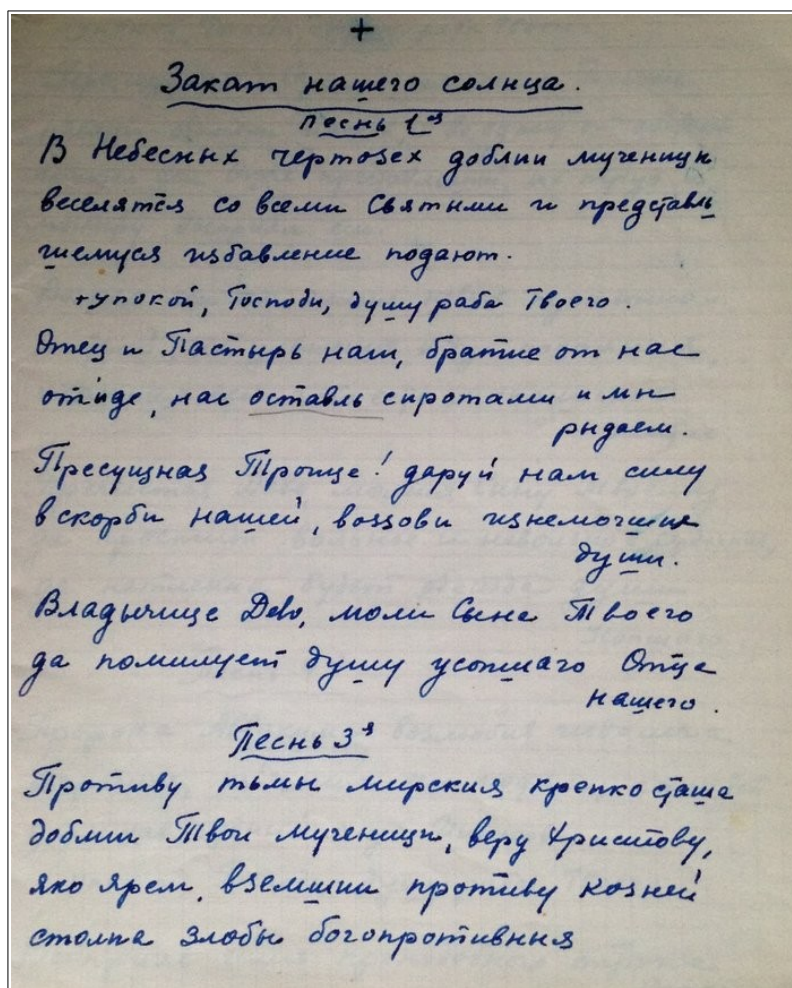 +
Закат нашего солнца.
Песнь 1я
В Небесных чертозех доблии мученицы
веселятся со всеми Святыми и представль
шемуся избавление подают.
+упокой, Господи, душу раба Твоего.
Отец и Пастырь наш, братие от нас
отиде, нас оставль сиротами и мы
рыдаем.
Пресущная Троице! даруй нам силу
в скорби нашей, воззови изнемогшия
души.
Владычице Дево, моли Сына Твоего
да помилует душу усопшаго Отца
нашего.
Песнь 3я
Противу тьмы мирския крепко сташа
доблии Твои мученицы, веру Христову,
яко ярем, вземшии противу козней
столпа злобы богопротивныя